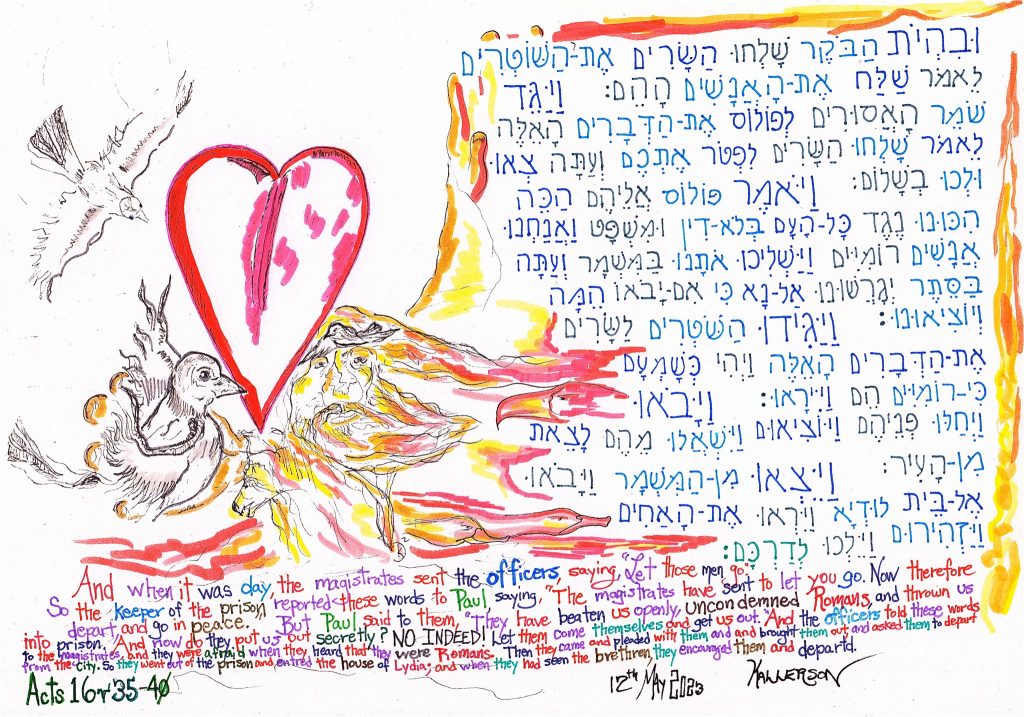 וּבִהְיֹת הַבֹּקֶר שָׁלְחוּ הַשָּׂרִים אֶת-הַשּׁוֹטְרִים
לֵאמֹר שַׁלַּח אֶת-הָאֲנָשִׁים הָהֵם: וַיַּגֵּד
שֹׁמֵר הָאֲסוּרִים לְפוֹלוֹס אֶת-הַדְּבָרִים הָאֵלֶּה
לֵאמֹר שָׁלְחוּ הַשָּׂרִים לִפְטֹר אֶתְכֶם וְעַתָּה צְאוּ
וּלְכוּ בְשָׁלוֹם: וַיֹּאמֶר פּוֹלוֹס אֲלֵיהֶם הַכֵּה
הִכּוּנוּ נֶגֶד כָּל-הָעָם בְּלֹא-דִין וּמִשְׁפָּט וַאֲנַחְנוּ
אֲנָשִׁים רוֹמִיִּים וַיַּשְׁלִיכוּ אֹתָנוּ בַּמִּשְׁמָר וְעַתָּה
בַּסֵּתֶר יְגָרְשׁוּנוּ אַל-נָא כִּי אִם-יָבֹאוּ הֵמָּה
וְיוֹצִיאוּנוּ: וַיַּגִּידוּ הַשֹּׁטְרִים לַשָּׂרִים
אֶת-הַדְּבָרִים הָאֵלֶּה וַיְהִי כְּשָׁמְעָם
כִּי-רוֹמִיִּים הֵם וַיִּירָאוּ: וַיָּבֹאוּ
וַיְחַלּוּ פְנֵיהֶם וַיּוֹצִיאוּם וַיִּשְׁאֲלוּ מֵהֶם לָצֵאת
מִן-הָעִיר: וַיֵּצְאוּ מִן-הַמִּשְׁמָר וַיָּבֹאוּ
אֶל-בֵּית לוּדְיָא וַיִּרְאוּ אֶת-הָאַחִים
וַיַּזְהִירוּם וַיֵּלְכוּ לְדַרְכָּם:
And when it was day, the magistrates sent the officers, saying, "Let those men go."
So the keeper of the prison reported these words to Paul, saying, "The magistrates have sent to let you go. Now therefore
depart and go in peace." But Paul said to them, "They have beaten us openly, uncondemned Romans, and thrown us
into prison. And now do they put us out secretly? NO INDEED! Let them come themselves and get us out." And the officers told these words
to the magistrates, and they were afraid when they heard that they were Romans. Then they came and pleaded with them and and brought them out and asked them to depart
from the city. So they went out of the prison and entired the house of Lydia; and when they had seen the brethren, they encouraged them and departd.
Acts 16 v 35-40
12th May 2023
KALLERSON